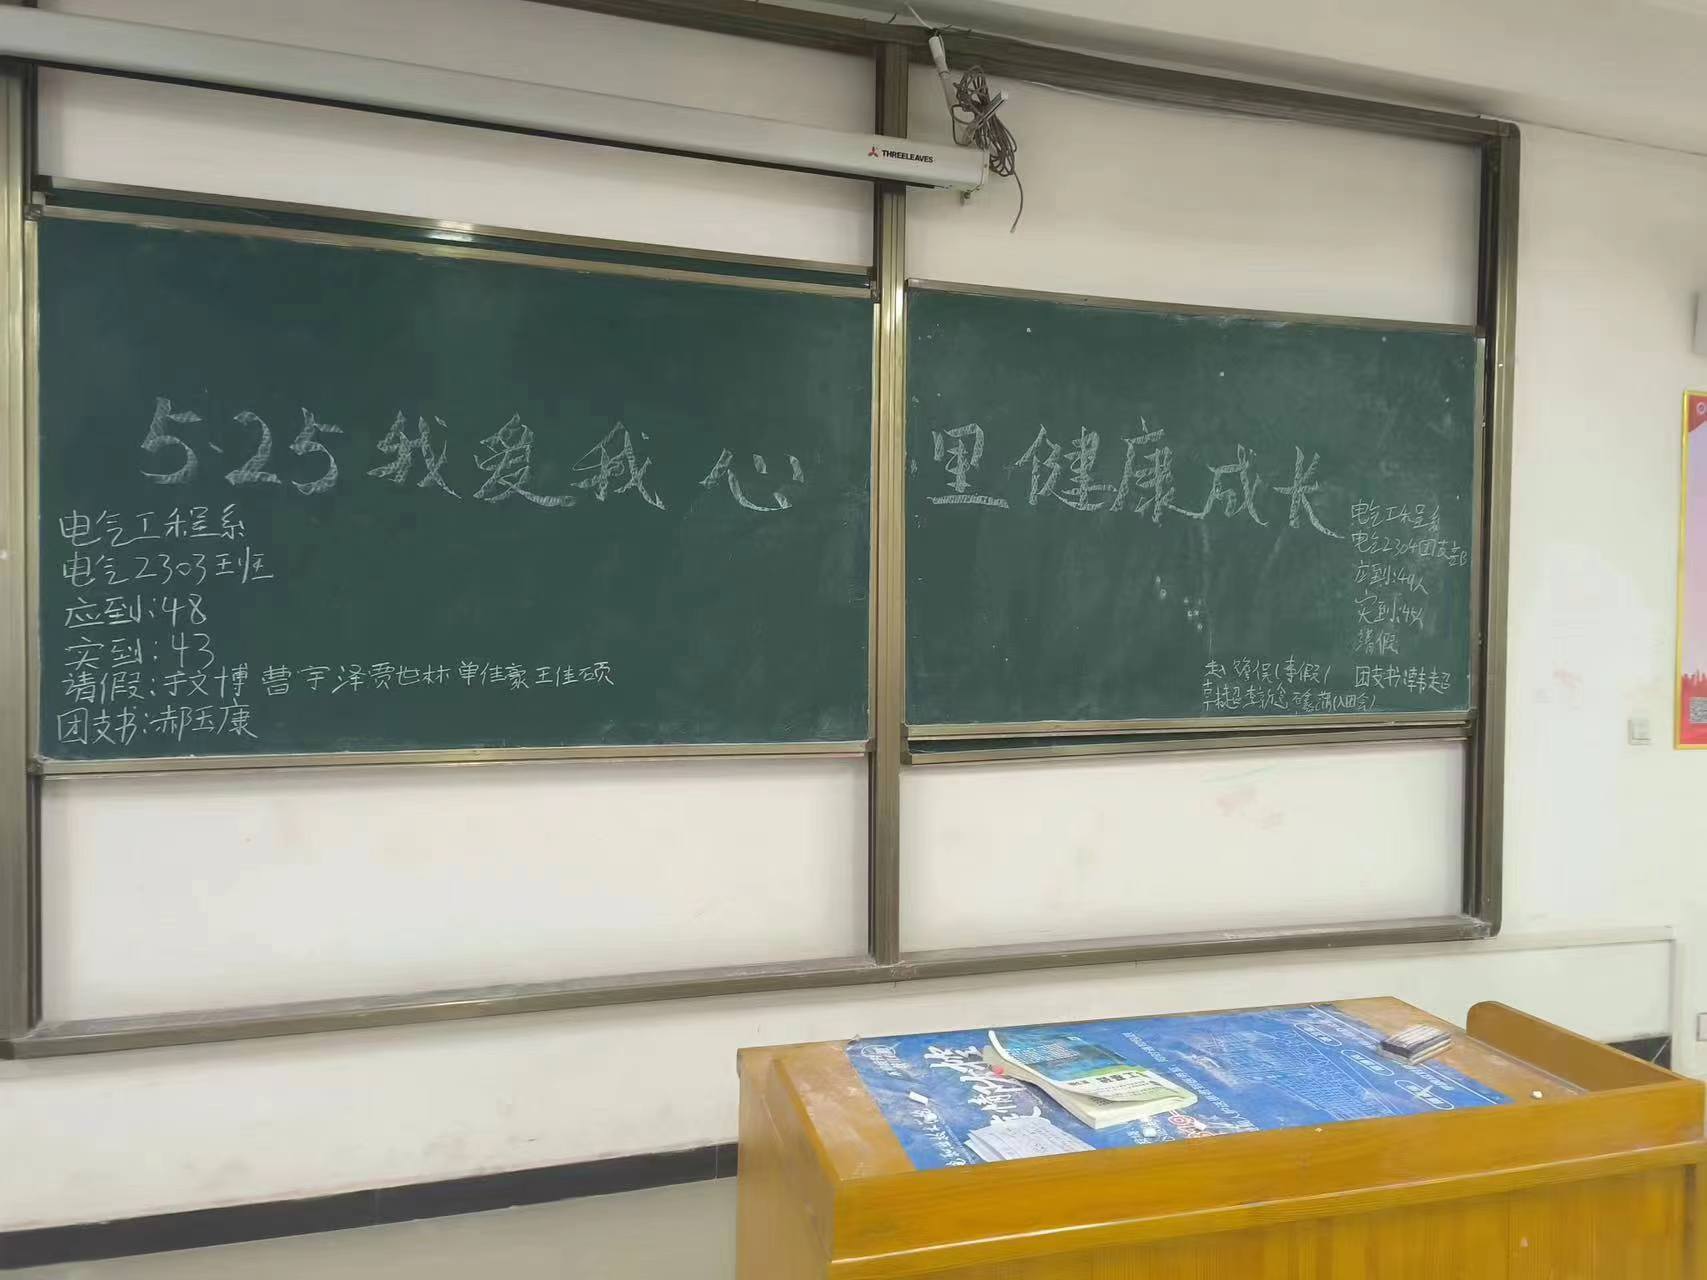 THREELEAVES
5.25 我爱我心里健康成长
电气工程系
电气2303班
应到:48
实到:43
请假:于文博 曹宇泽 贾世林 单佳豪 王佳硕
团支书:郝玉康
电气工程系
电气2304团支部
应到:49人
实到:45人
请假
(事假)
团支书:韩超
(入团会)